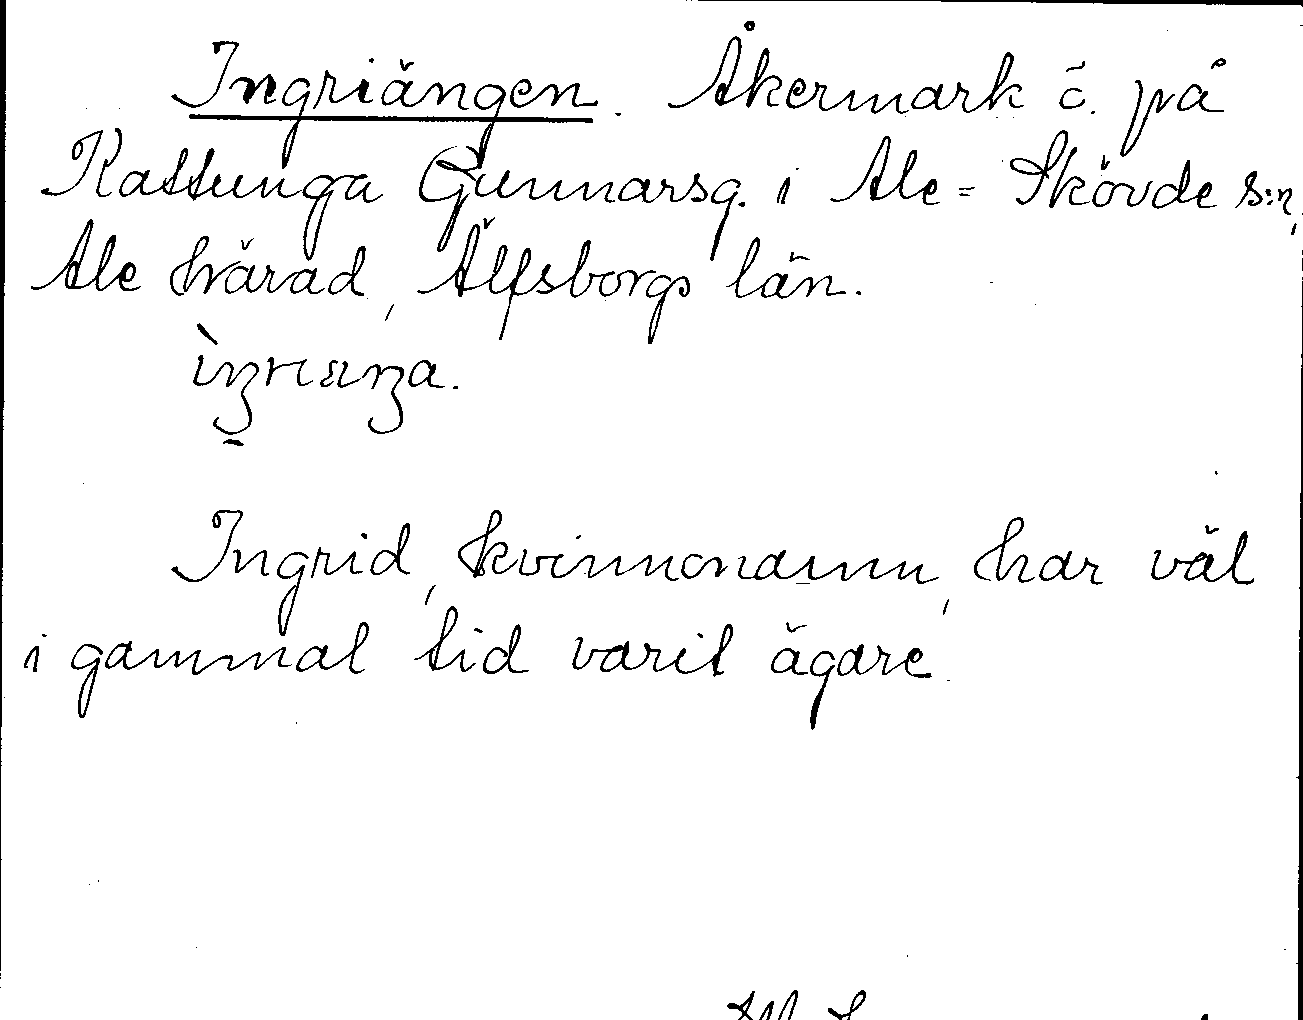 Ingriängen. Åkermark ö. på
Kattunga Gunnarsg. i Ale-Skövde s:n,
Ale härad, Älfsborgs län.
Ingrid, kvinnonamn, har väl
i gammal tid varit ägare.